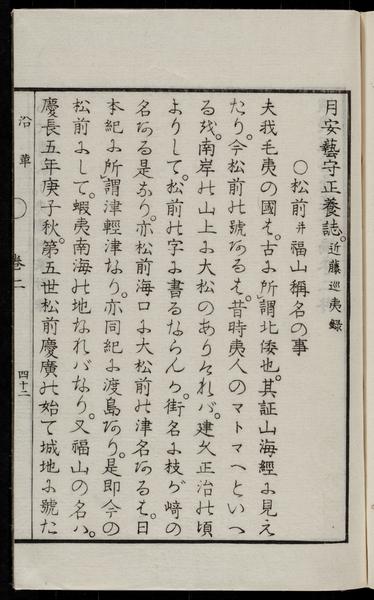 月安藝守正養誌。近藤巡夷録
○松前井福山稱名の事
夫我毛夷の國は。古に所謂北倭也。其証山海經に見え
たり。今松前の號あるは。昔時夷人のマトマヘといつ
る拔。南岸の山上に大松のありければ。建久正治の頃
よりして。松前の字に書るならんか。街名に枝が﨑の
名ある是なり。亦松前海口に大松前の津名あるは。日
本紀に所謂津輕津なり。亦同紀に渡島あり。是即今の
松前にして。蝦夷南海の地なればなり。又福山の名は。
慶長五年庚子秋。第五世松前慶廣の始て城地に號た
沿革
卷二
四十二